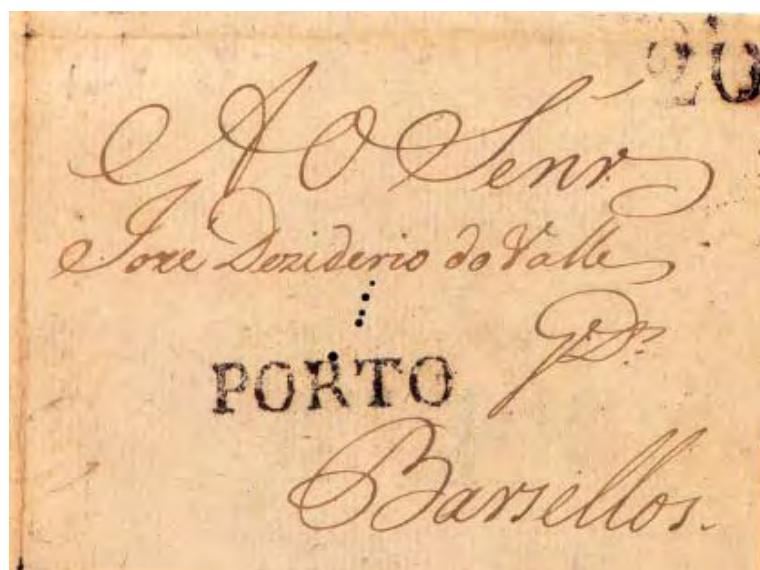 20
AO Senr.
Joze Deziderio do Valle
PORTO
Barsellos.